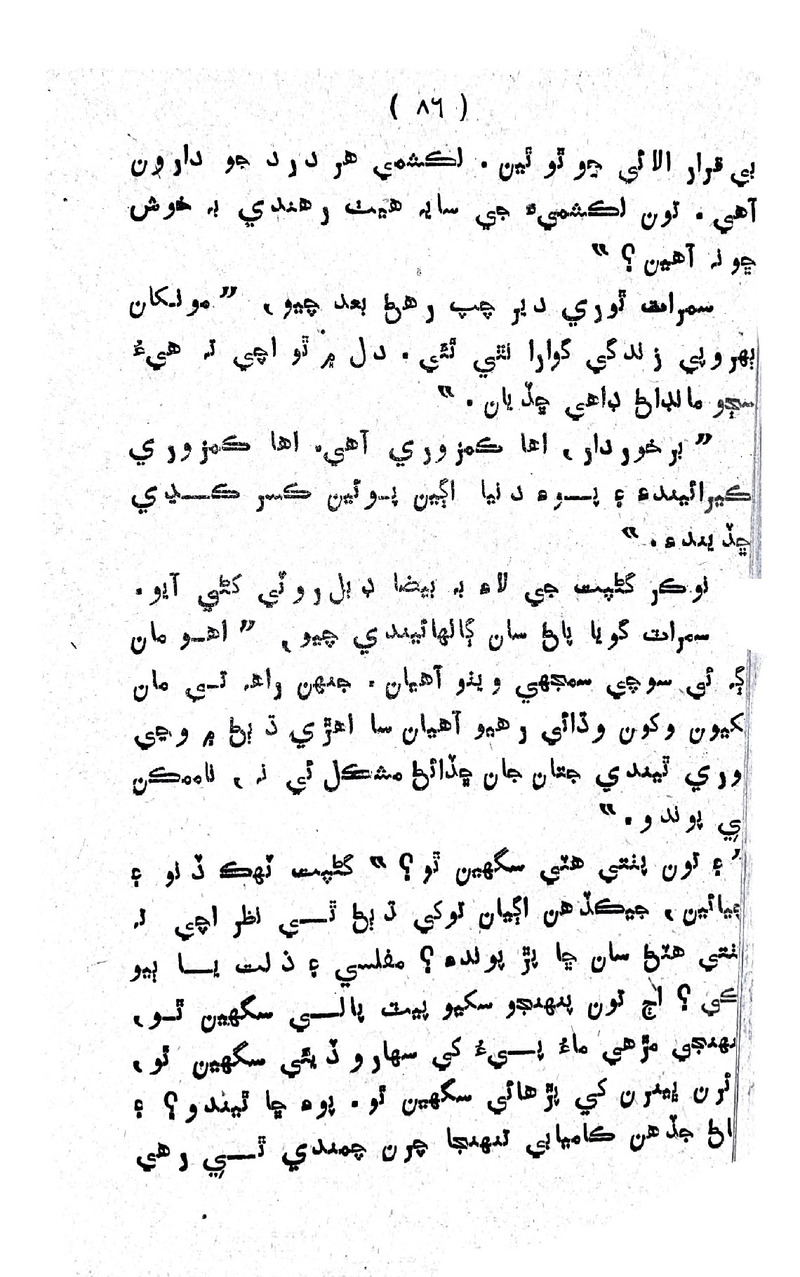 ( ۸٦ )
بي قرار الائي ڇو ٿو ٿين . لڪشمي هر درد جو دارون
آهي . تون لڪشميءَ جي سايہ هيٺ رهندي بہ خوش
ڇو نہ آهين ؟ ”
سمراٽ ٿوري دير چپ رهڻ بعد چيو ، ” مونکان
بهروپي زندگي گوارا نٿي ٿئي . دل ۾ ٿو اچي تہ هيءُ
سڄو مانڊاڻ ڊاهي ڇڏيان . ”
” برخوردار ، اها ڪمزوري آهي. اها ڪمزوري
ڪيرائيندءِ ۽ پــوءِ دنيا اڳين پـوئين ڪسر ڪــڍي
ڇڏيندءِ . ”
نوڪر گڻپت جي لاءِ بہ بيضا ڊبل روٽي کڻي آيو .
سمراٽ گويا پاڻ سان ڳالهائيندي چيو ، ” اهـو مان
ئي سوچي سمجهي ويٺو آهيان . جنهن راهہ تـي مان
وکون وڌائي رهيو آهيان سا اهڙي ڌٻڻ ۾ وڃي
وري ٿيندي جتان جان ڇڏائڻ مشڪل ئي نہ ، ناممڪن
ٿي پوندو . ”
” ۽ تون پٺتي هٽي سگهين ٿو ؟ ” گڻپت ٽهڪ ڏنو ۽
چيائين ، جيڪڏهن اڳيان توکي ڌٻڻ ٿـــي نظر اچي تہ
پٺتي هٽڻ سان ڇا پڙ پوندءِ ؟ مفلسي ۽ ذلت يــا ٻيو
ڪي ؟ اڄ تون پنهنجو سکيو پيٽ پالـــي سگهين ٿـو ،
پنهنجي مڙهي ماءُ پــيءُ کي سهارو ڏيئي سگهين ٿو ،
ڀينرن کي پڙهائي سگهين ٿو . پوءِ ڇا ٿيندو ؟ ۽
هاڻ جڏهن ڪاميابي تنهنجا چرن چمندي ٿـــي رهي